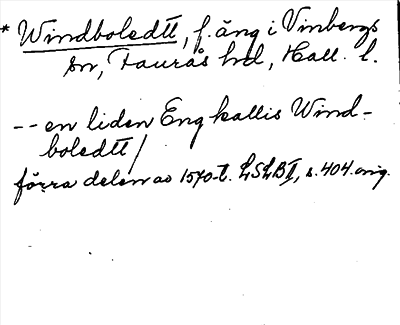 * Windboledtt, f. äng i Vinbergs
sn, Faurås hd, Hall. l.
-- en liden Eng kallis Wind-
boledtt/
förra delen av 1570-t. LSLB II, s. 404. orig.